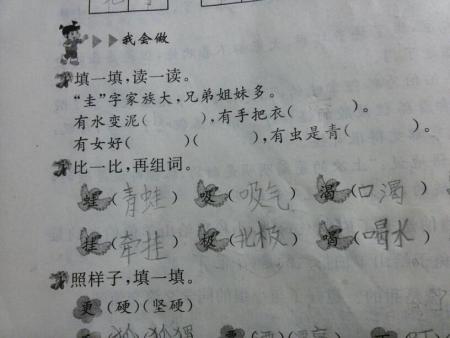 我会做
填一填，读一读。
“圭”字家族大，兄弟姐妹多。
有水变泥（ ），有手把衣（ ）。
有女好（ ）（ ），有虫是青（ ）。
比一比，再组词。
蛙（青蛙） 吸（吸气） 渴（口渴）
挂（牵挂） 极（北极） 喝（喝水）
照样子，填一填。
更（硬）（坚硬）